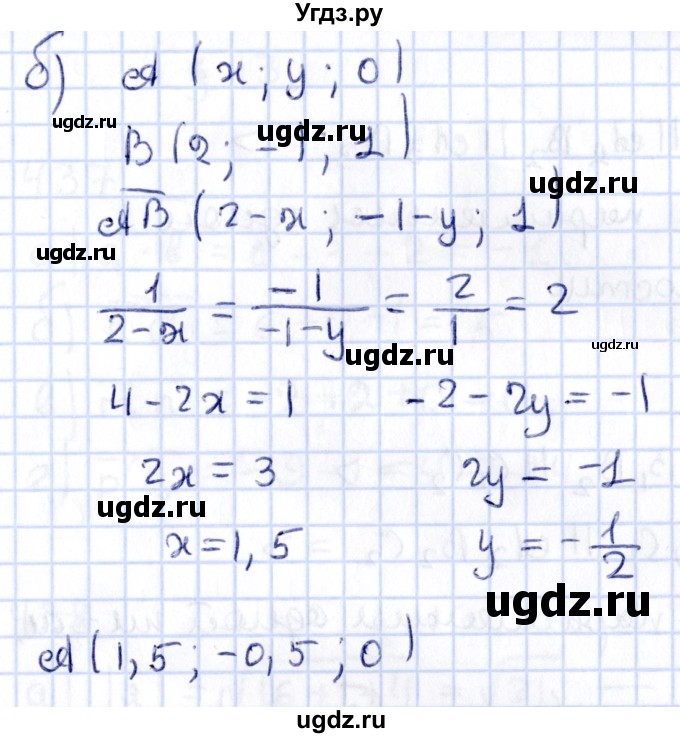 Угдз.ру
б) A (x; y; 0)
ugdz.ru
B (2; -1, 1)
ugdz.ru
AB (2-x; -1-y; 1)
ugdz.ru
1/(2-x) = -1/(-1-y) = 2/1 = 2
ugdz.ru ugdz.ru
4 - 2x = 1 -2 - 2y = -1
2x = 3 2y = -1
ugdz.ru
x = 1,5 y = -1/2
ugdz.ru
A (1,5; -0,5; 0)
ugdz.ru